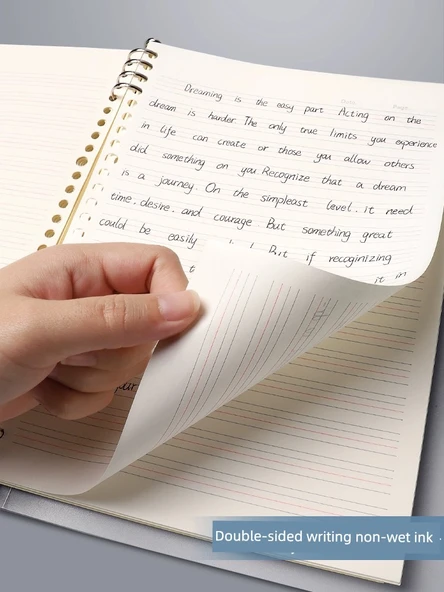 Dreaming is the easy part Acting on the
dream is harder The only true limits you experience
in life can create or those you allow others
did something on you Recognize that a dream
is a journey. On the simpleast level. it need
time. desire. and courage But something great
could be easily But if recoginizing
it in
Double-sided writing non-wet ink